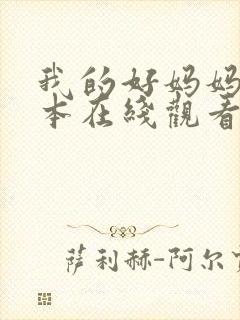 我的好妈妈
本在线觀看
萨利赫-阿尔